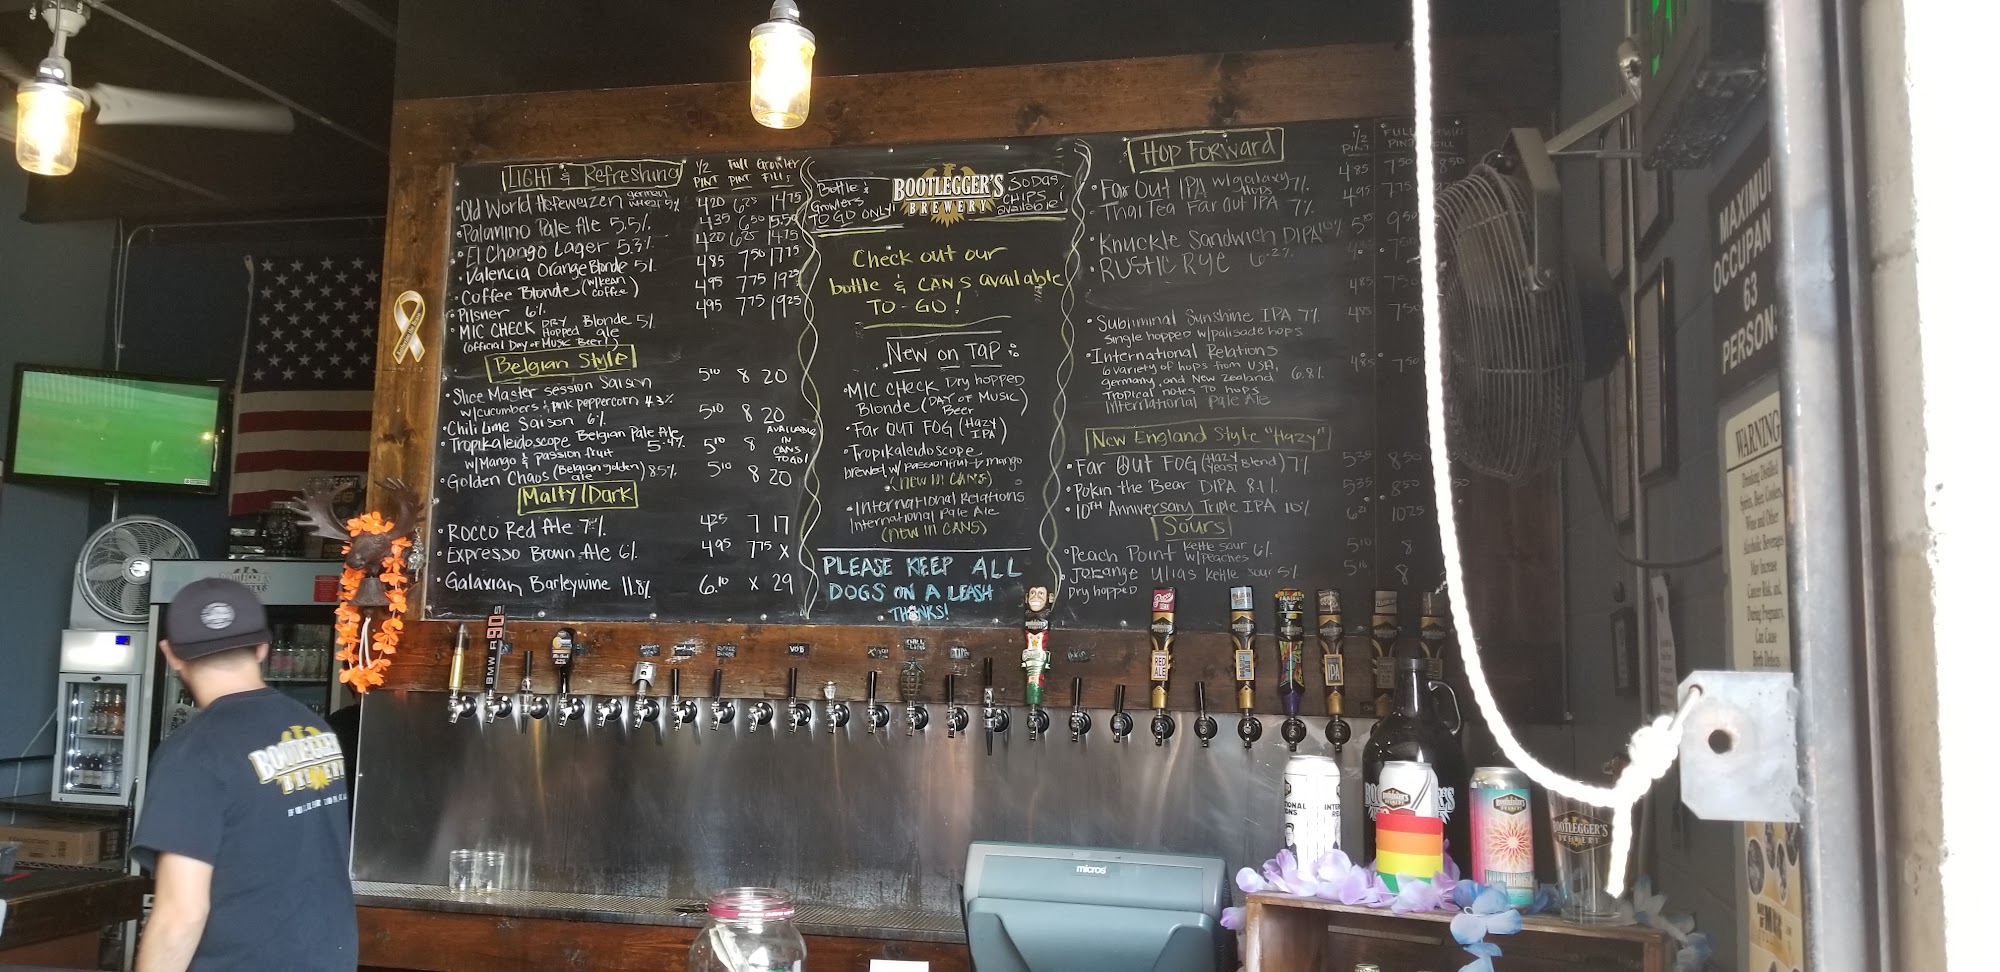 LIGHT & Refreshing
1/2 PINT Full PINT Growler Fills
• Old World Hefeweizen german wheat 5% 4.20 6.25 14.75
• Palamino Pale Ale 5.5% 4.35 6.50 15.50
• El Chango Lager 5.3% 4.20 6.25 14.75
• Valencia Orange Blonde 5% 4.85 7.50 17.75
• Coffee Blonde (w/kean coffee) 4.95 7.75 19.25
• Pilsner 6% 4.95 7.75 19.25
• MIC CHECK DRY Hopped Blonde ale 5%
(official Day of Music Beer!)
Belgian Style
• Slice Master session Saison 5.10 8 20
w/cucumbers & pink peppercorn 4.3%
• Chili Lime Saison 6% 5.10 8 20
• Tropikaleidoscope Belgian Pale Ale 5.4% 5.10 8
w/Mango & passion fruit
AVAILABLE
IN
CANS
TO GO!
• Golden Chaos (Belgian golden ale) 8.5% 5.10 8 20
Malty/Dark
• Rocco Red Ale 7% 4.25 7 17
• Expresso Brown Ale 6% 4.95 7.75 x
• Galaxian Barleywine 11.8% 6.10 x 29
Bottle &
Growlers
TO GO ONLY!
BOOTLEGGER'S
BREWERY
SODAS
CHIPS
available!
Check out our
bottle & CANS available
TO-GO!
New on TAP:
• MIC CHECK Dry hopped
Blonde (DAY of MUSIC Beer)
• Far OUT FOG (Hazy IPA)
• Tropikaleidoscope
brewed w/ passionfruit & mango
(new in CANS)
• International Relations
International Pale Ale
(new in CANS)
PLEASE KEEP ALL
DOGS ON A LEASH
THNKS!
Hop Forward
1/2 PINT FULL PINT
• Far Out IPA w/galaxy Hops 7% 4.85 7.50
• Thai Tea Far Out IPA 7% 4.95 7.75
• Knuckle Sandwich DIPA 10% 5.10 9.50
• Rustic Rye 6.2%
• Subliminal Sunshine IPA 7%
Single hopped w/palisade hops
• International Relations 6.8%
6 variety of hops from USA,
germany, and New Zealand
Tropical notes TO hops
International Pale Ale
New England Style "Hazy"
• Far Out FOG (Hazy Yeast Blend) 7% 5.35 8.50
• Pokin the Bear DIPA 8.1% 5.35 8.50
• 10TH Anniversary Triple IPA 10% 10.25
Sours
• Peach Point kettle sour w/peaches 6% 5.10 8
Kettle sour 5% 5.10 8
Dry hopped
MAXIMUM
OCCUPAN
63
PERSON
WARNING
Drinking Distilled
Spirits, Beer, Coolers,
Wine and Other
Alcoholic Beverages
May Increase
Cancer Risk, and,
During Pregnancy,
Can Cause
Birth Defects
BMW R90S
VOB
RED
ALE
IPA
BOOTLEGGER'S
BREWERY
FULLERTON, CAL
micros
TIONAL
ONS
INTER
BOOTLEGGER'S
BREWERY